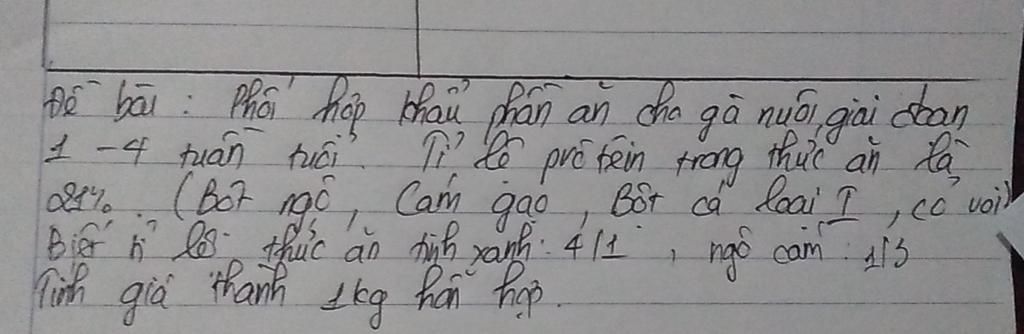 Đề bài: Phối hợp khẩu phần ăn cho gà nuôi, giai đoạn
1-4 tuần tuổi. Tỉ lệ prôtêin trong thức ăn là
21%. (Bột ngô, Cám gạo, Bột cá loại I, cỏ voi)
Biết tỉ lệ thức ăn tinh xanh: 4/1, ngô cám: 1/3
Tính giá thành 1kg hỗn hợp.